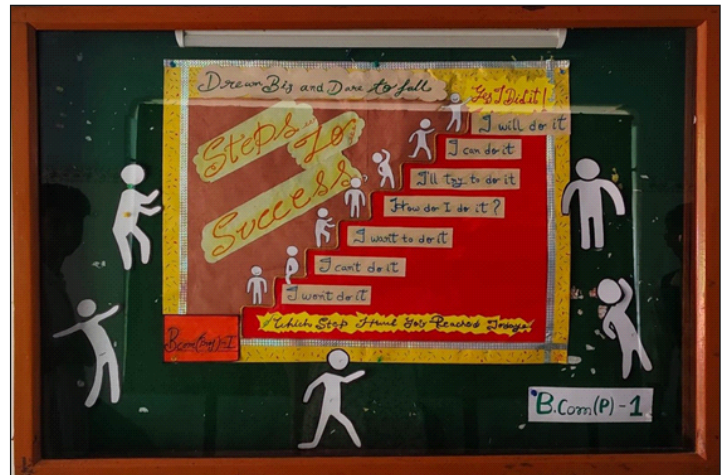 Dream Big and Dare to fall
Yes I Did it!
Steps To
Success
I will do it
I can do it
I'll try to do it
How do I do it?
I want to do it
I can't do it
I wont do it
Which Step Have You Reached Today!
B.com(P)-I
B.Com(P)-1